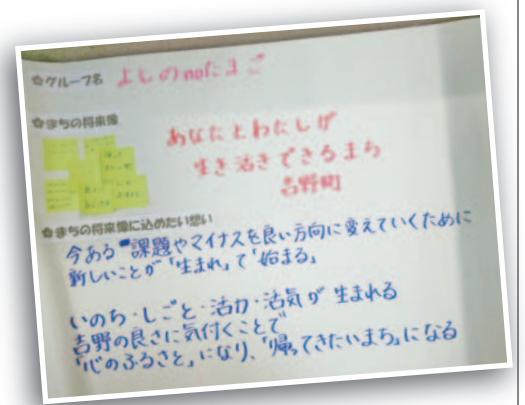 ✿グループ名 よしのnoたまご
✿まちの将来像
あなたとわたしが
生き活きできるまち
吉野町
✿まちの将来像に込めたい想い
今ある 課題やマイナスを良い方向に変えていくために
新しいことが「生まれ」て「始まる」
いのち・しごと・活力・活気が 生まれる
吉野の良さに気付くことで
「心のふるさと」になり、「帰ってきたいまち」になる